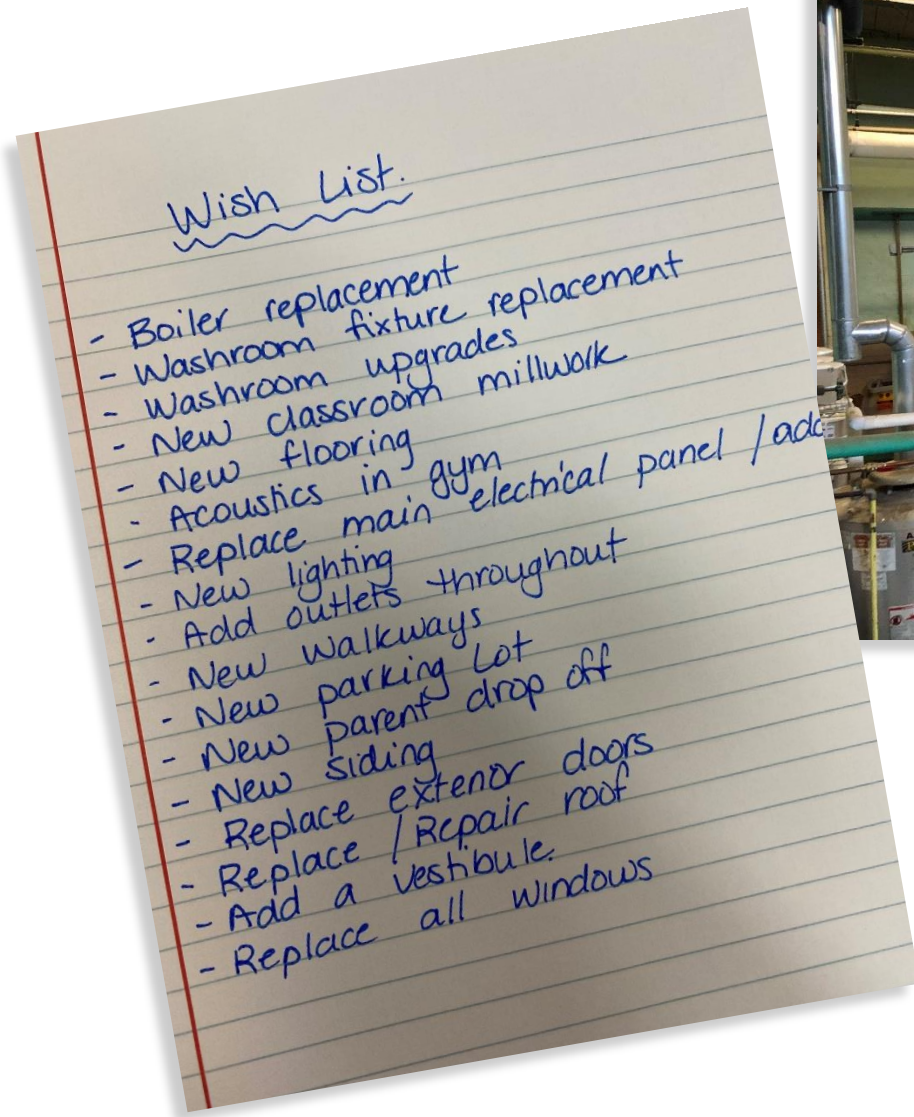 Wish List.
- Boiler replacement
- Washroom fixture replacement
- Washroom upgrades
- New classroom millwork
- New flooring
- Acoustics in gym
- Replace main electrical panel /add
- New lighting
- Add outlets throughout
- New walkways
- New parking Lot
- New parent drop off
- New siding
- Replace exterior doors
- Replace /Repair roof
- Add a vestibule.
- Replace all windows